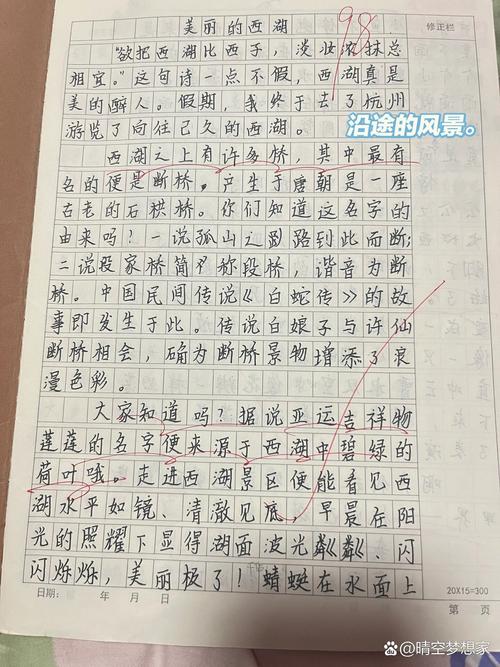 美丽的西湖
98
修正栏
"欲把西湖比西子，淡妆浓抹总
相宜。"这句诗一点不假，西湖真是
美的醉人。假期，我终于去了杭州
游览了向往已久的西湖。
沿途的风景。
西湖之上有许多桥，其中最有
名的便是断桥。产生于唐朝是一座
古老的石拱桥。你们知道这名字的
由来吗？一说孤山之路到此而断；
二说段家桥简称段桥，谐音为断
桥。中国民间传说《白蛇传》的故
事即发生于此。传说白娘子与许仙
断桥相会，确为断桥景物增添了浪
漫色彩。
大家知道吗？据说亚运吉祥物
莲莲的名字便来源于西湖中碧绿的
荷叶哦。走进西湖景区便能看见西
湖水平如镜、清澈见底，早晨在阳
光的照耀下显得湖面波光粼粼、闪
闪烁烁，美丽极了！蜻蜓在水面上
日期： 年 月 日
20X15=300
第 页
@晴空梦想家